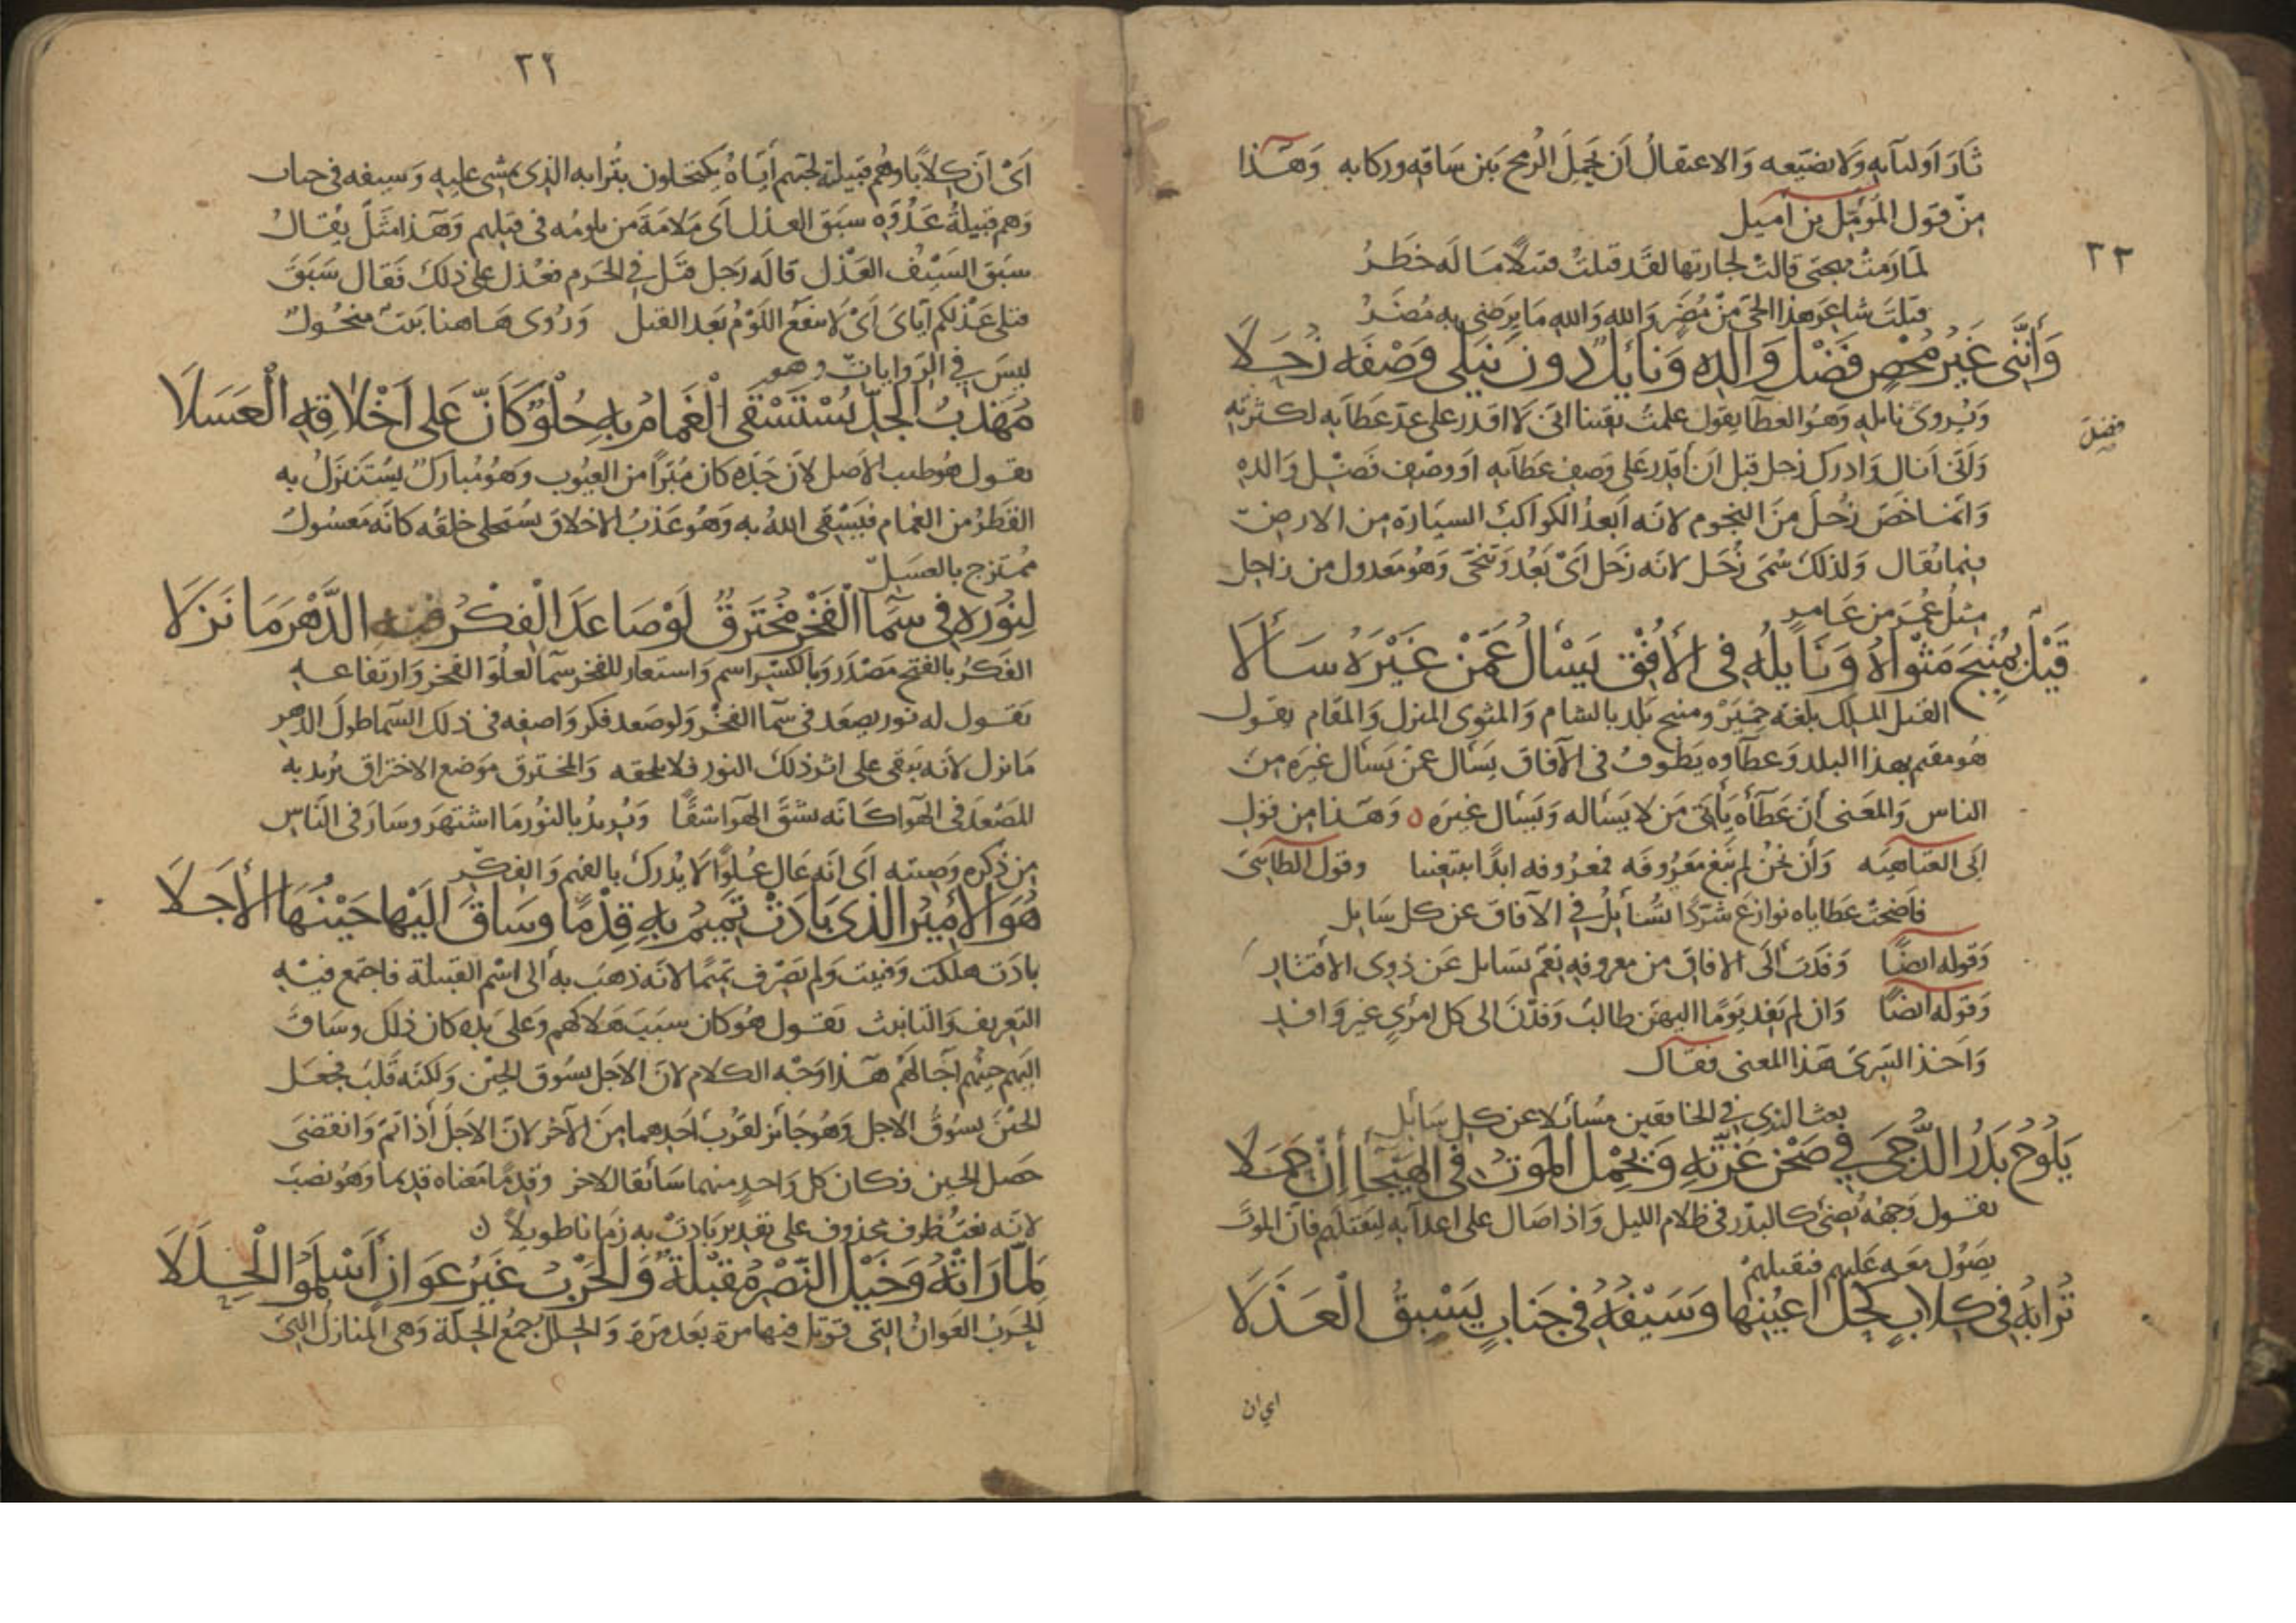 ثَارَ اَوليآيه وَلا يضيّعه وَالاعتقالُ اَن يَجعلَ الرمح بَين سَاقه وركابه وَهَذا
مِنْ قول المُؤمّل بن اَميل
لما رَمَتْ مهجتى قالتْ لجارتها لقد قتلتْ قتيلًا مَا لَه خطَرُ
قتلتَ شاعِرَ هذا الحيّ مِنْ مُضَرٍ وَالله وَالله مَا يَرضى به مُضَرُ
٣٢
وَأَنَّنِى غَيْرُ مُحْصٍ فَضْلَ وَالِدِهِ وَنَائِلٌ دونَ نَيْلى وَصْفَه زُحَلَا
وَيُروى نايله وَهوَ العطآ يقول علمتُ يقينا انى لَا اقدر على عدّ عَطآيه لكثرته
فضل
وَلَاَنى اَنال وَادرك زحل قبل اَن أَقدر عَلى وَصف عَطآيه اَو وصف فَضْل وَالده
وَانما خصّ زُحلَ مِنَ النجوم لانّه اَبعدُ الكواكب السيّارة من الارض
فيما يُقال وَلذلك سُمّى زُحَل لانه زَحَل اَىْ بَعُد وَتنَحّى وَهُو مَعدول من زاحِل
مثلُ عُمَر من عَامر
قَيْلٌ بِمَنْبِجَ مَثْوَاهُ وَنَايِلُهُ فِى الأُفْقِ يَسْأَلُ عَمَّنْ غَيْرَهُ سَأَلَا
القيل الملِك بلغة حِمْيَر ومنبج بَلد بالشام وَالمثوى المنزل وَالمقَام يقول
هُو مقيم بهذا البلد وَعطآوه يَطوفُ فى الآفاق يَسأل عمّن يَسأل غيرَه من
الناس وَالمعَنى أنّ عَطآءَه يَأتى مَن لا يسَأله وَيَسأل غيرَه ٥ وَهَذا من قول
ابى العتاهيَه وَاَن نحنُ لم نَبغ مَعْرُوفَه فمعرُوفه ابدًا يبتغينا وقول الطآىّ
فَاضحَت عَطاياه نوازعَ شرّدًا تُسَآيِلُ فى الآفاق عن كل سَايل
وَقوله ايضًا وَفَدتَ الَى الافاق من معروفه نِعَم تسَايل عَن ذوى الاقتار
وَقوله ايضًا وَان لم يَفِد يَومًا اليهن طالبٌ وَفَدْنَ الى كل امرئٍ غير وَافد
وَاَخذ السَرىّ هَذا المعنى فقال
بعث الندى فى الخافقين مسُآئلا عن كل سَآئل
يَلُوحُ بَدْرُ الدُّجَى فِي صَحْنِ غُرَّتِهِ وَيَحْمِلُ المَوْتُ فِى الهَيْجَآ إِنْ حَمَلَا
يقول وَجهُه يُضىُ كالبدْر فى ظلام الليل وَاذا صَال على اعدآيه ليقتلَهم فانّ الموتَ
يصَوُل معَه عَليهم فيقتلهمْ
تُرَابُهُ فِى كِلَابٍ كُحْلُ اَعْيُنِهَا وَسَيْفُهُ فِى جَنَابٍ يَسْبِقُ الْعَذَلَا
اى ان
٣٢
اَىْ اَنّ كِلَابًا وَهُم قبيلة لحبّهم أيّاهُ يكتحلون بتُرابه الذِى يمشى عليه وَسيفه فى جناب
وَهم قبيلةُ عَدُوّه سبَق العذل اَى مَلامَةَ مَن يلومُه فى قتلهم وَهَذا مثَلٌ يُقالُ
سبَق السَيْفُ العَذْل قالَه رَجل قتَل فِي الحَرم فعُذل على ذلك فَقال سَبَقَ
قتلى عَذْلكم ايّاىَ اَىْ لا ينفعُ اللَوْمُ بَعد القتل وَرُوى هَاهنا بَيتٌ منحُولٌ
ليسَ فِي الرّوَايات وهو
مُهَذَّبُ الْجَدِّ يُسْتَسْقَى الْغَمَامُ بِهِ حُلْوٌ كَأَنَّ عَلى أَخْلَاقِهِ الْعَسَلَا
يقول هُو طيب الاَصل لاَنّ جَدّه كان مُبَرّأً من العيُوب وَهُو مُبارَكٌ يُسْتَنزَلُ به
القَطْرُ من الغمام فيَسْقى اللهُ به وَهُو عَذبُ الاخلاق يُستحلى خلقُه كانّه مَعسُولٌ
مُمتزج بالعسَل
لِنُورِهِ فِى سَمَآ الْفَخْرِ مُخْتَرَقٌ لَوْ صَاعَدَ الْفِكْرُ فيه الدَّهْرَ مَا نَزَلَا
الفَكرُ بالفتح مَصْدَر وَبالكسْر اسم وَاستعار للفخر سمَآ لعلُوّ الفخر وَارتفاعه
يَقول له نور يصعَد فى سمَآ الفخْر وَلو صَعد فكر وَاصفه فى ذلك السّما طولَ الدهر
مَا نزل لاَنه يَبقى على اثر ذلك النور فلا يلحقه وَالمخترق مَوضع الاختراق يُريد به
المصَعَد فى الهَوا كانّه يشقّ الهَوآ شقًّا وَيُريدُ بالنوُر مَا اشتهَر وسَارَ فى النَاس
من ذكره وَصيته اَى انه عَالٍ عُلوًّا لا يُدرَك بالفهم وَالفكْر
هُوَ الأَمِيرُ الَّذِى بَادَتْ تَمِيمُ بِهِ قِدْمًا وَسَاقَ إِلَيْهَا حَيْنُهَا الأَجَلَا
بادَت هلكت وَفنيت وَلم يَصرْف تميمًا لانّه ذهبَ به الى اسْم القبيلة فاجتمع فيه
التعريف وَالتانيث يقول هُو كان سبَبَ هَلاكهم وَعَلى يَده كان ذلك وسَاقَ
اليهم حيْنُهم آجَالَهُم هَذا وَجْه الكلام لانّ الاجلَ يسُوق الحيْن وَلكنّه قلَبَ فجعَل
الحيْنَ يسُوقُ الاجل وَهُو جَائز لقُرْب اَحَدهما مِنَ الآخر لانّ الاَجلَ اذا تمّ وَانقضى
حَصل الحين فكان كل وَاحدٍ منهما سَائقا للاخر وقدمًا مَعناه قديما وَهُو نصبَ
لانّه نعتُ ظرف محذوف على تقدير بَادَتْ به زمَانا طويلاً ٥
لَمَّا رَأَتْهُ وَخَيْلُ النَّصْرِ مُقْبِلَةٌ وَالْحَرْبُ غَيْرُ عَوَانٍ أَسْلَمُوا الْحِلَلَا
الحَربُ العَوانُ التى قوتل فيها مرة بَعد مَرّة وَالحِلَلُ جمعُ الحِلّة وَهى المنازلُ التىَ